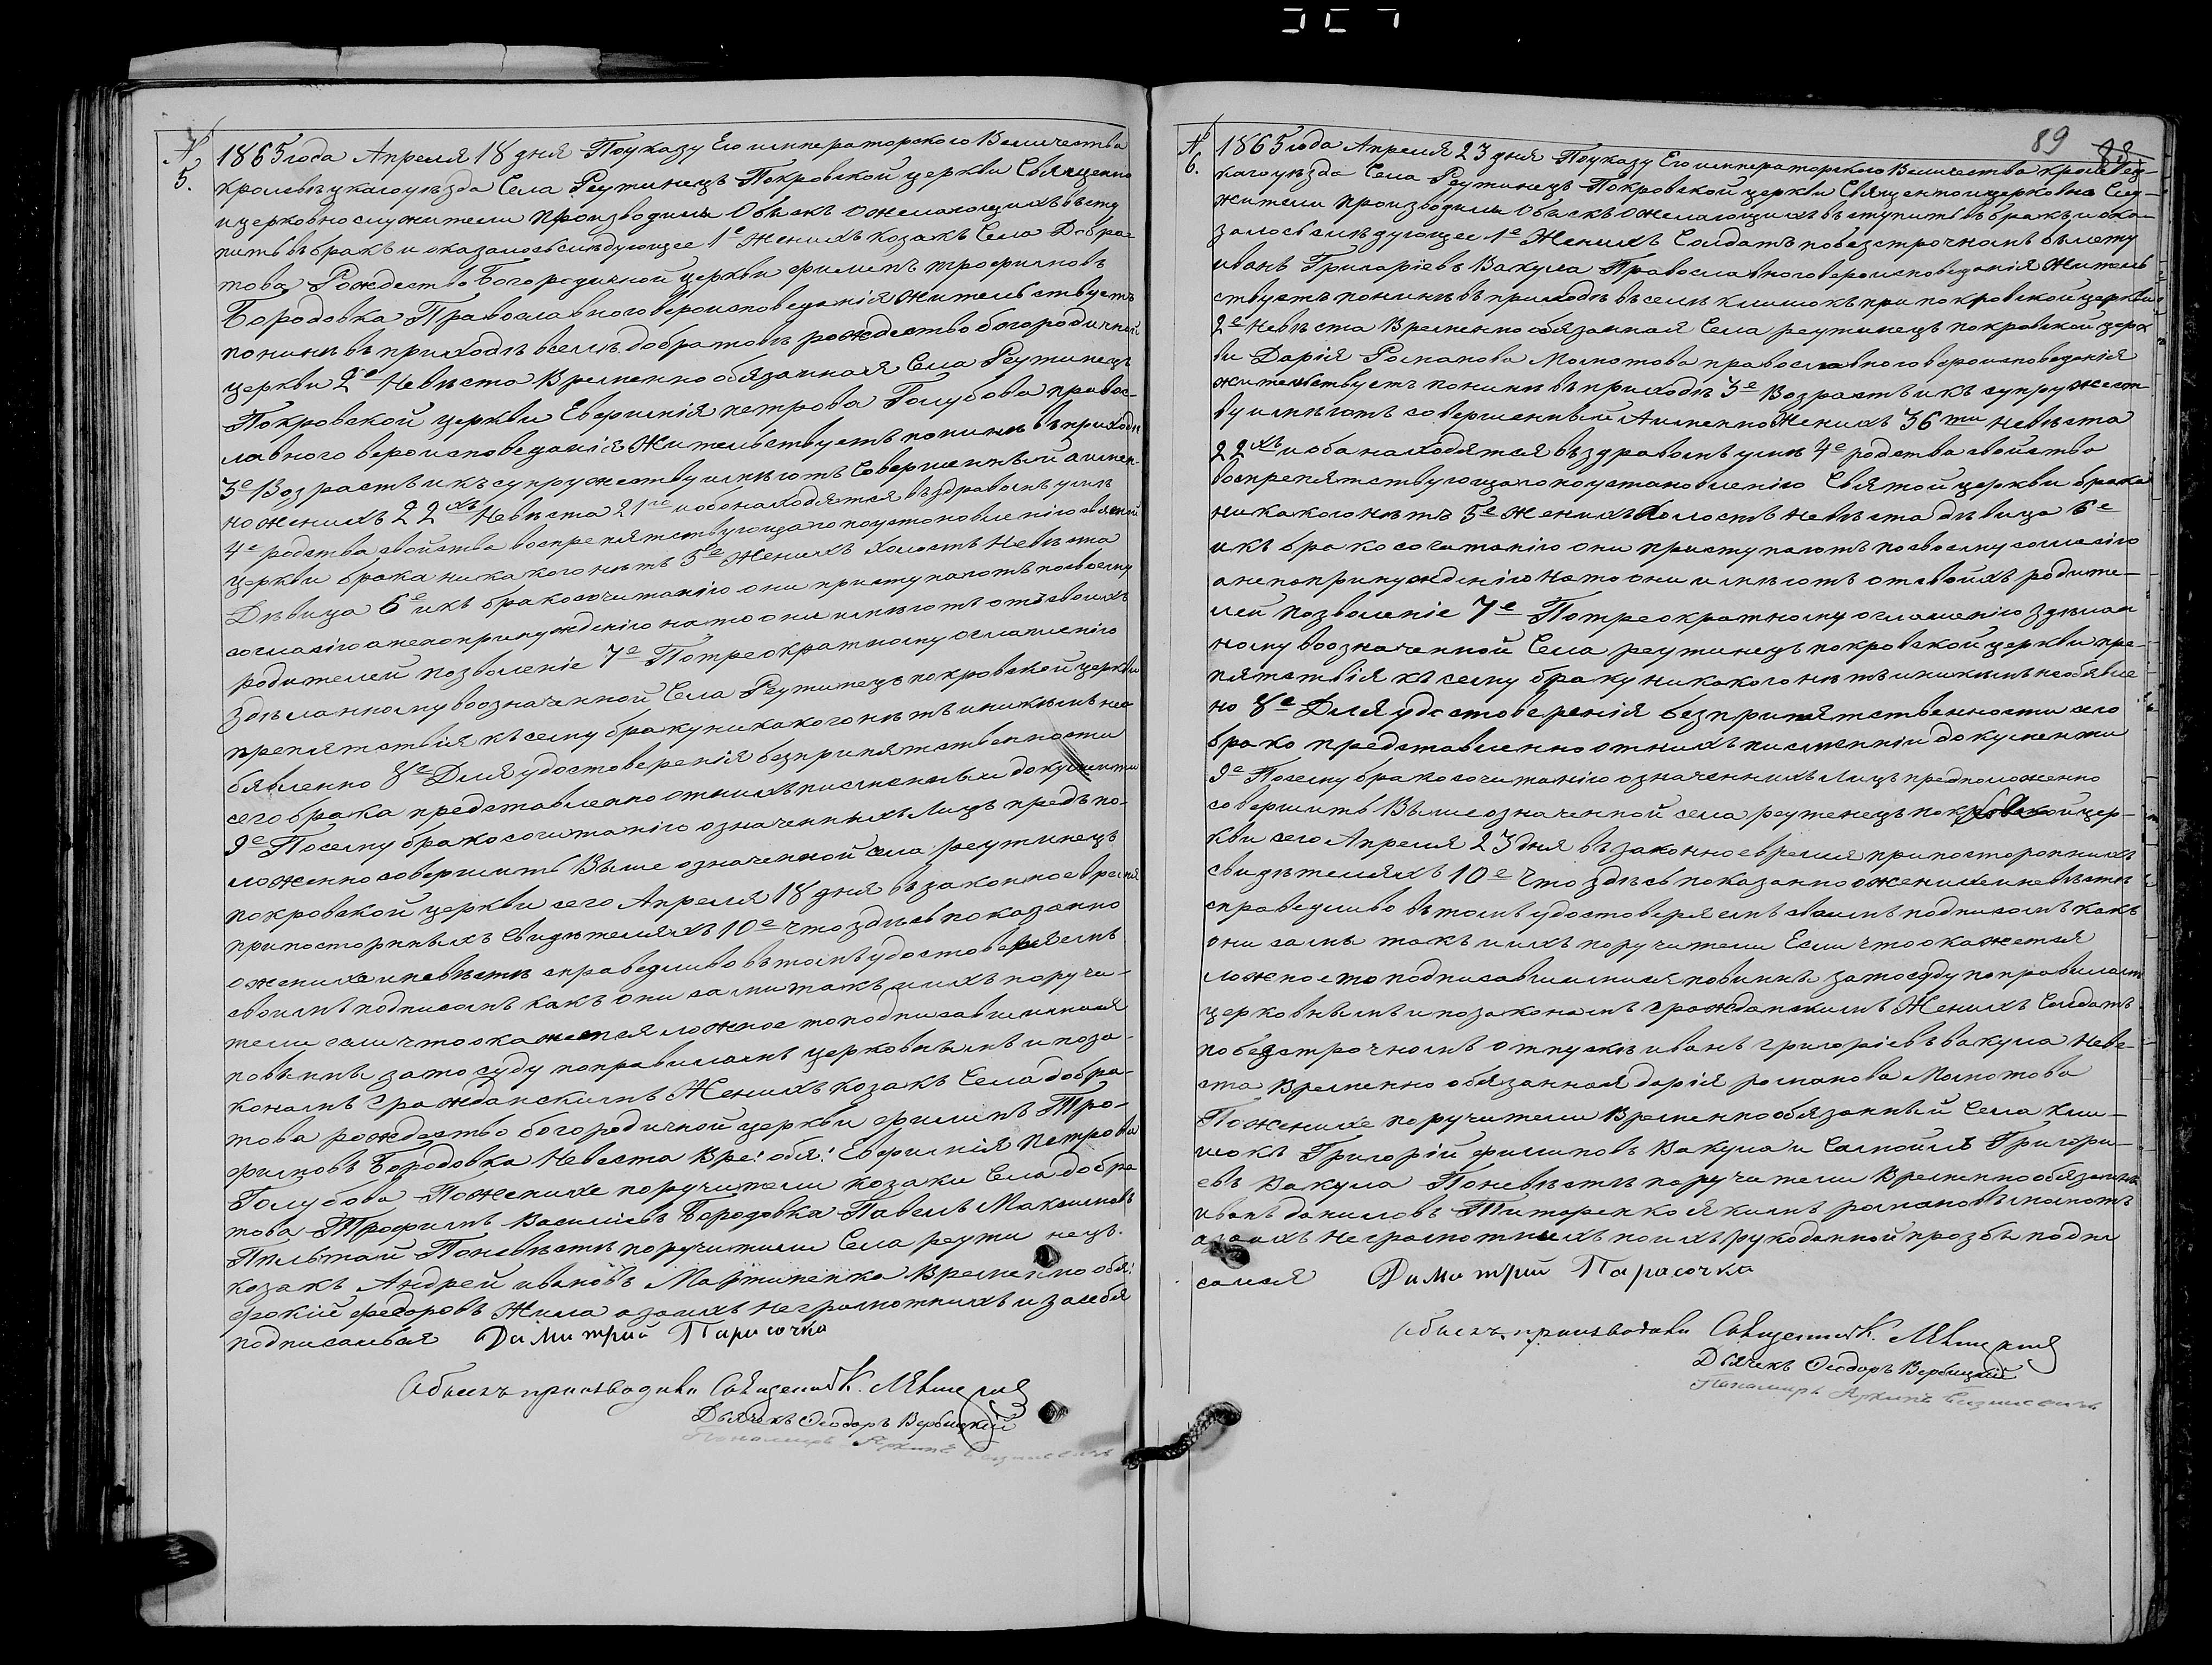 №
5.
1865 года Апреля 18 дня Поуказу Его императорского Величества
кролевецкаго уезда Села Реутинецъ Покровской церкви Священно
и церковнослужители производили Обыскъ ожелающихъ всту
пить вбракъ и оказалось слѣдующее 1е Женихъ козакъ Села Добра-
това Рождество Богородичной церкви филипъ трофимовъ
Бородовка Православного вероисповеданія жительствуетъ
понинѣ въ приходѣ вселѣ добратовѣ рождество богородичной
церкви 2е Невѣста Временно обязанная Села Реутинецъ
Покровской церкви Евфимія петрова Голубова правос-
лавного вероисповеданія Жительствуетъ понинѣ въ приходѣ
3е Возрастъ икъ супружеству имѣютъ Совершенный аимен-
но женихъ 22хъ Невѣста 21го и оба находятся въ здравомъ умѣ
4е родства свойства воспрепятствующаго поустановленію святой
церкви брака никакого нѣтъ 5е Женихъ холостъ Невѣста
Дѣвица 6е икъ бракосочитанію они приступаютъ посвоему
согласію анепопринужденію нато они имѣютъ отъ своихъ
родителей позволеніе 7е Потреократному оглашенію
здѣланному воозначенной Села Реутинецъ покровской церкви
препятствія ксему браку никакого нѣтъ иникѣмъ нео
бявленно 8е Для удостоверенія безприпятственности
сего брака представленно отнихъ писменныи документи
9е Посему бракосочитанію означенныхъ Лицъ предъпо-
ложенно совершить Выше означенной села реутинецъ
покровской церкви сего Апреля 18 дня въ законное время
припосторнныхъ Свидѣтеляхъ 10е что здѣсь показанно
ожениxе иневѣстѣ справедливо втомъ удостоверяемъ
своимъ подписомъ какъ они сами такъ иихъ поручи-
тели если что окажется ложное то подписавшимися
повинны зато суду поправиламъ церковнымъ и поза-
конамъ Гражданскимъ Женихъ козакъ Села добра-
това рождество богородичной церкви филипъ Тро-
фимовъ Бородовка Невеста Вре: обя: Евфимія Петрова
Голубова Пожениxе поручители козаки Села добра
това Трофимъ Василіевъ Бородовка Павелъ Максимовъ
Поневѣстѣ поручители Села реути нецъ.
козакъ Андрей ивановъ Мартиненко Временно обя:
федоровъ Жила азаихъ неграмотнихъ и засебя
подписалъся Димитрий Парасочка
Обыскъ производили Священникъ К.
Дьячекъ Феодоръ Вербицкій
Пономаръ Архипъ
89
№
6.
1865 года Апреля 23 дня Поуказу Его императорского Величества кролевец-
каго уезда Села Реутинецъ Покровской церкви Священно ицерковно Слу-
жители производили Обыскъ ожелающихъ вступить въ бракъ иока-
залось слѣдующее 1е Женихъ Солдатъ побезстрочномъ былету
иванъ Григоріевъ Вакула Православного вероисповеданія Житель
ствуетъ понинѣ въ приходѣ въ селѣ клишокъ при покровской церкви
2е Невѣста Временно обязанная Села реутинецъ покровской церк
ви Дарія Романова Молотова православного вероисповеданія
жительствуетъ понинѣ въ приходѣ 3е Возрастъ икъ супружест
ву имѣютъ совершенный Аименно Женихъ 36ти невѣста
22хъ иоба находятся въ здравомъ умѣ 4е родства свойства
воспрепятствующаго поустановленію Святой церкви брака
никакого нѣтъ 5е женихъ холостъ невѣста дѣвица 6е
икъ бракосочитанію они приступаютъ посвоему согласію
анепопринужденію нато они имѣютъ отсвоихъ родите-
лей позволеніе 7е Потреократному оглашенію здѣлан
ному воозначенной Села реутинецъ покровской церкви пре-
пятствія ксему браку никакого нѣтъ иникѣмъ необявле
но 8е Для удостоверенія безприпятственности сего
брака представленно отнихъ писменніи документи
9е Посему бракосочитанію означеннихъ Лицъ предположенно
совершить Вышеозначенной села реутенецъ покровской цер-
кви сего Апреля 23 дня въ законное время припостороннихъ
свидѣтеляхъ 10е Что здѣсь показанно оженихе иневѣстѣ
справедливо втомъ удостоверяемъ своимъ подписомъ какъ
они самы такъ иихъ поручители Если что окажется
ложное то подписавшимися повинны зато суду поправиламъ
церковнымъ и позаконамъ гражданскимъ Женихъ Солдатъ
побезстрочномъ отпускѣ иванъ григоріевъ вакула Неве-
ста Временно обязанная дарія романова Молотова
Пожениxе поручители Временнообязанный Села Кли-
шокъ Григорій филиповъ Вакула и Самойлъ Григори-
евъ Вакула Поневѣстѣ поручители Временнообязанны
иванъ даниловъ Титаренко Якимъ романовъ молотъ
азаихъ неграмотныхъ поихъ рукоданной прозбѣ подпи
сался Димитрий Парасочка
Обыскъ производили Священникъ К.
Дьячекъ Феодоръ Вербицкій
Пономаръ Архипъ